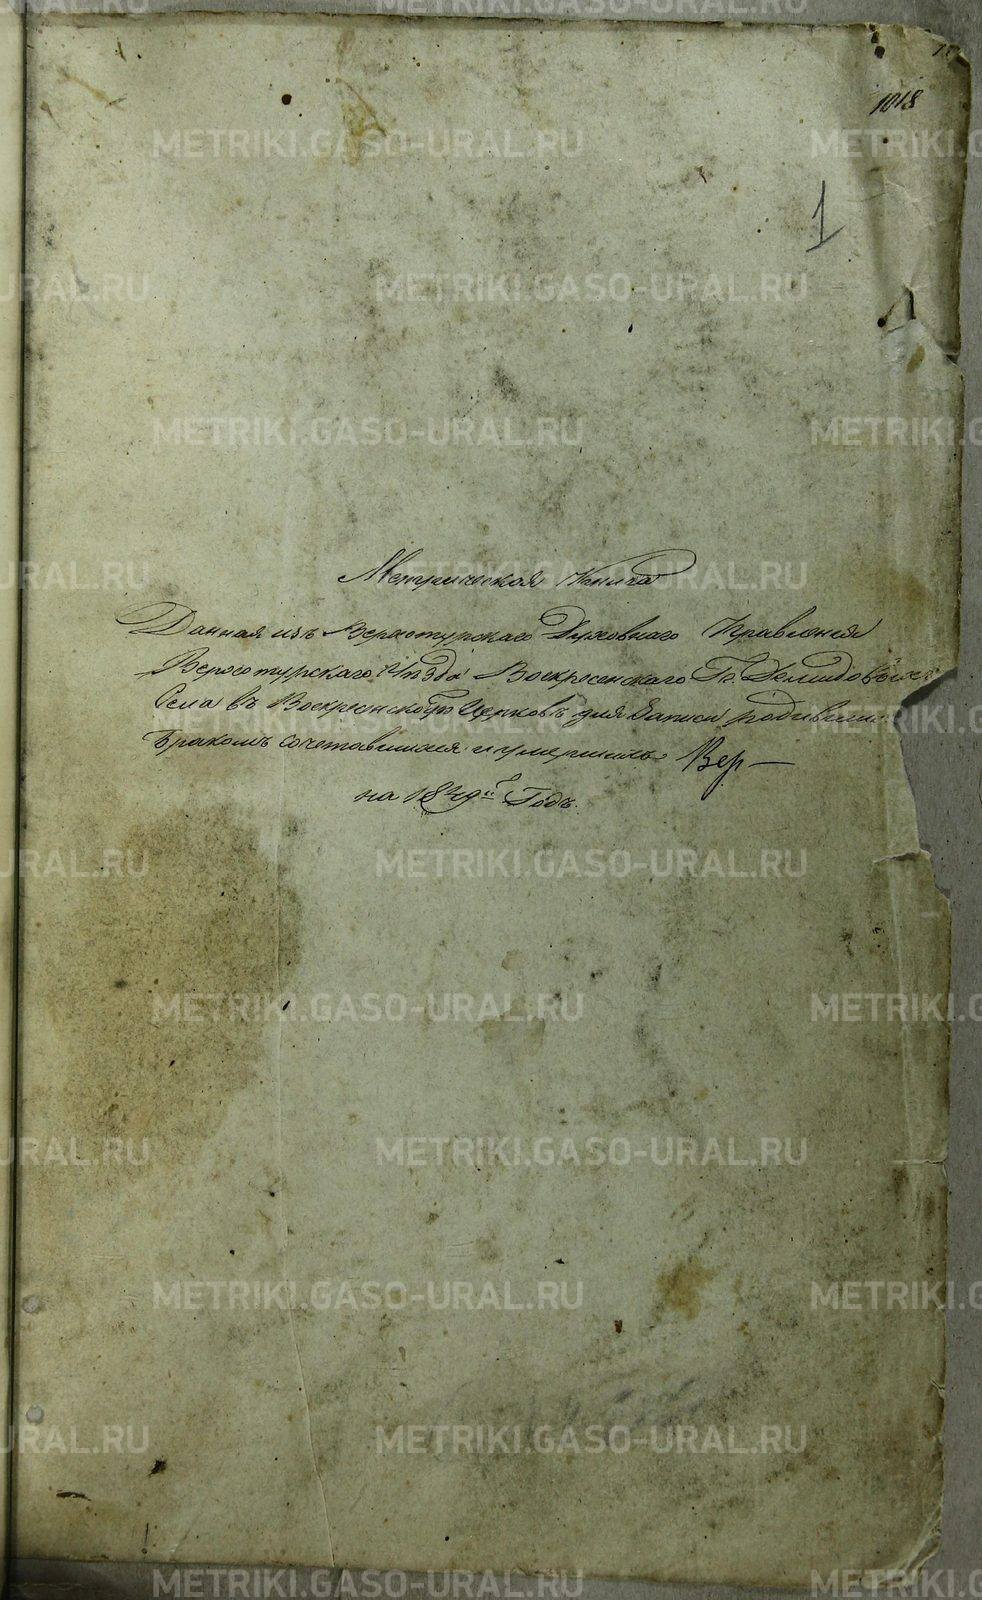 1018
1
Метрическая Книга
Данная изъ Верхотурскаго Духовнаго Правления
Верхотурскаго Уѣзда Воскресенскаго Гг. Демидовыхъ
Села въ Воскресенскую Церковь для Записи родившихся
Бракомъ сочетавшихся и умершихъ Вер—
на 1849й Годъ.
METRIKI.GASO-URAL.RU